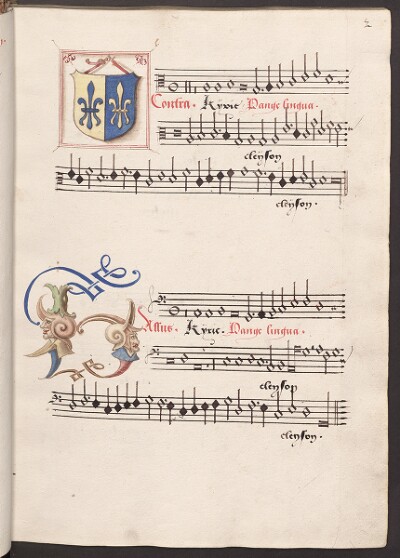 Contra. Kyrie Pange lingua.
eleyson
eleyson.
Bassus. Kyrie. Pange lingua.
eleyson
eleyson.